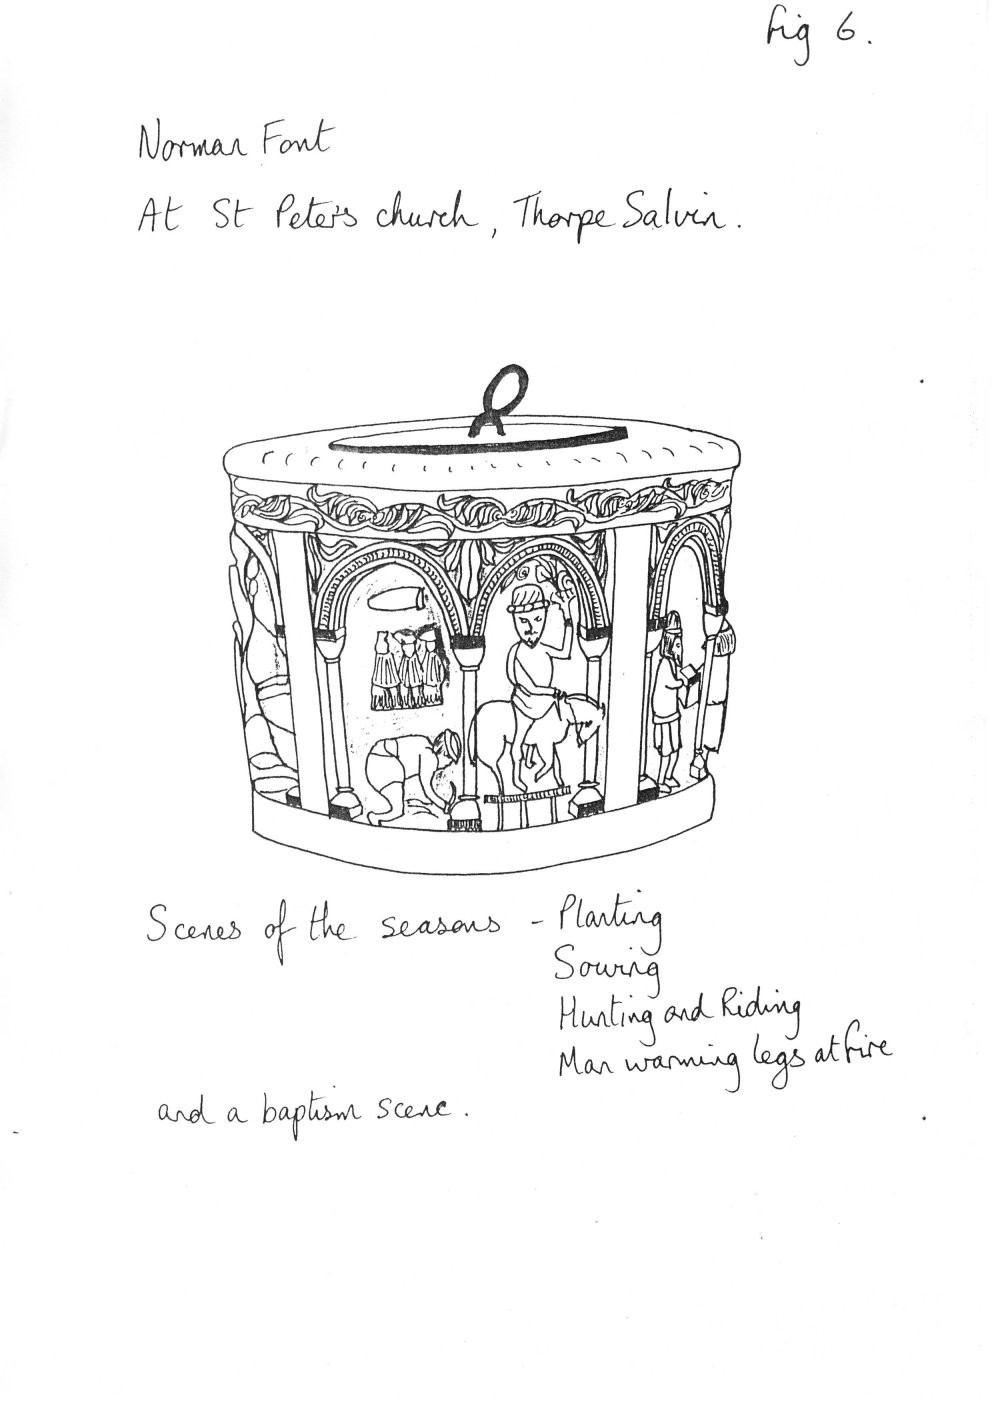 Fig 6.
Norman Font
At St Peter's church, Thorpe Salvin.
Scenes of the seasons - Planting
Sowing
Hunting and Riding
Man warming legs at fire
and a baptism scene.